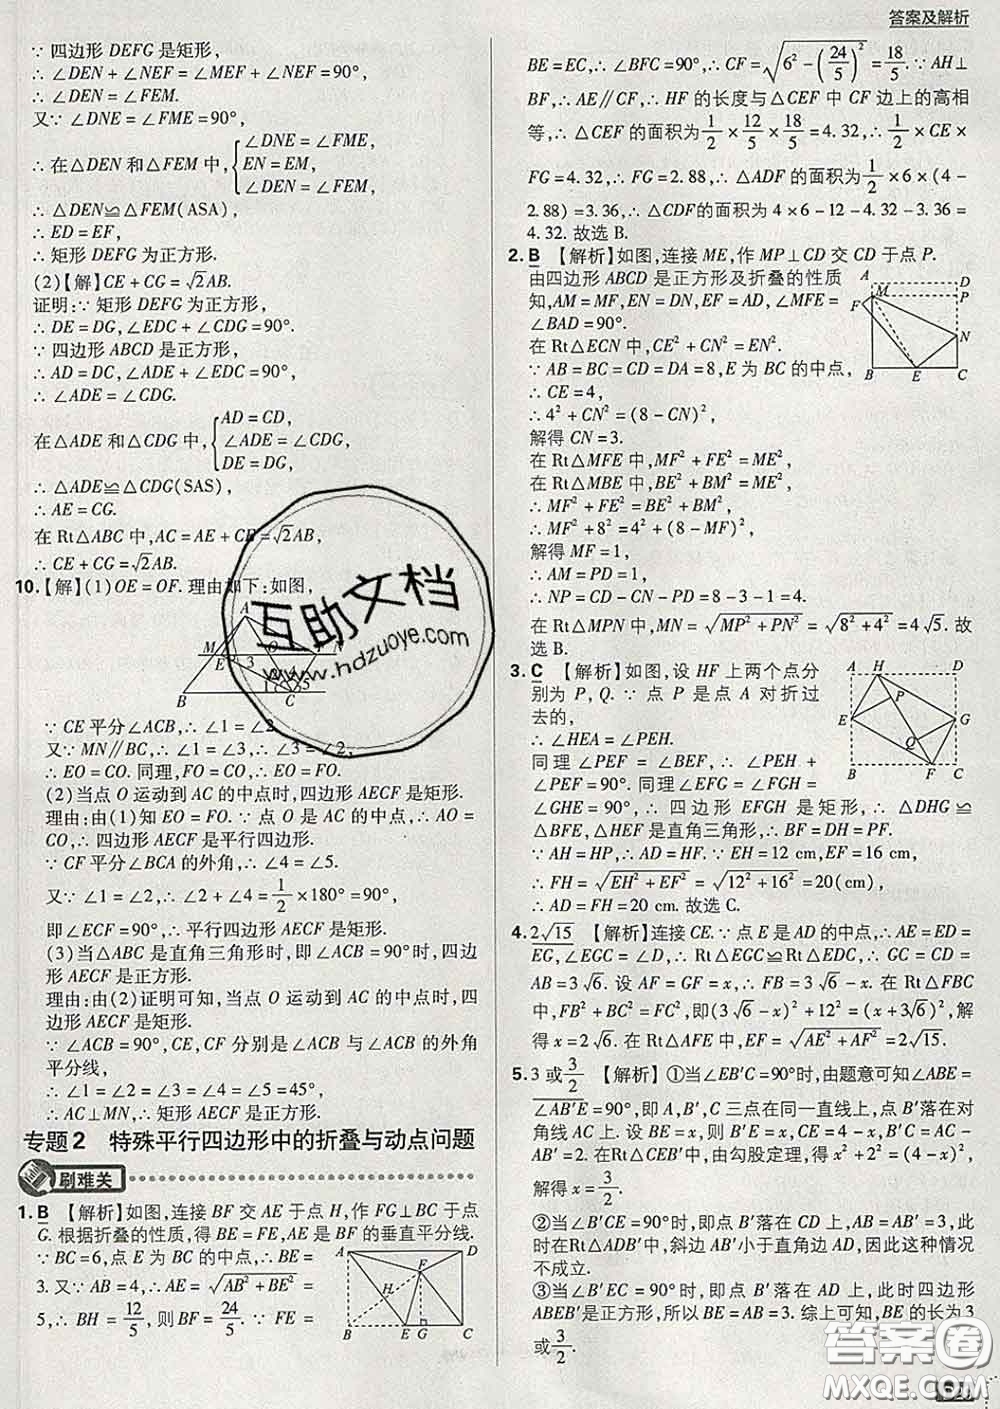 答案及解析
∵ 四边形 DEFG 是矩形,
∴ ∠DEN + ∠NEF = ∠MEF + ∠NEF = 90°,
∴ ∠DEN = ∠FEM.
又∵ ∠DNE = ∠FME = 90°,
∴ 在△DEN 和△FEM 中, { ∠DNE = ∠FME,
EN = EM,
∠DEN = ∠FEM,
∴ △DEN≌△FEM(ASA),
∴ ED = EF,
∴ 矩形 DEFG 为正方形.
(2)【解】CE + CG = √2AB.
证明:∵ 矩形 DEFG 为正方形,
∴ DE = DG,∠EDC + ∠CDG = 90°.
∵ 四边形 ABCD 是正方形,
∴ AD = DC,∠ADE + ∠EDC = 90°,
∴ ∠ADE = ∠CDG.
在△ADE 和△CDG 中, { AD = CD,
∠ADE = ∠CDG,
DE = DG,
∴ △ADE≌△CDG(SAS),
∴ AE = CG.
在 Rt△ABC 中,AC = AE + CE = √2AB,
∴ CE + CG = √2AB.
10.【解】(1)OE = OF. 理由如下:如图,
A
M E O F N
3 2
B C
1 4 5
∵ CE 平分∠ACB,∴ ∠1 = ∠2.
又∵ MN∥BC,∴ ∠1 = ∠3,∴ ∠3 = ∠2,
∴ EO = CO. 同理,FO = CO,∴ EO = FO.
(2)当点 O 运动到 AC 的中点时,四边形 AECF 是矩形.
理由:由(1)知 EO = FO. ∵ 点 O 是 AC 的中点,∴ AO =
CO,∴ 四边形 AECF 是平行四边形.
∵ CF 平分∠BCA 的外角,∴ ∠4 = ∠5.
又∵ ∠1 = ∠2,∴ ∠2 + ∠4 = 1/2 × 180° = 90°,
即∠ECF = 90°,∴ 平行四边形 AECF 是矩形.
(3)当△ABC 是直角三角形时,即∠ACB = 90°时,四边
形 AECF 是正方形.
理由:由(2)证明可知,当点 O 运动到 AC 的中点时,四
边形 AECF 是矩形.
∵ ∠ACB = 90°,CE,CF 分别是∠ACB 与∠ACB 的外角
平分线,
∴ ∠1 = ∠2 = ∠3 = ∠4 = ∠5 = 45°,
∴ AC⊥MN,∴ 矩形 AECF 是正方形.
专题 2 特殊平行四边形中的折叠与动点问题
刷难关
1. B 【解析】如图,连接 BF 交 AE 于点 H,作 FG⊥BC 于点
G. 根据折叠的性质,得 BE = FE,AE 是 BF 的垂直平分线.
∵ BC = 6,点 E 为 BC 的中点,∴ BE =
3. 又∵ AB = 4,∴ AE = √(AB² + BE²) =
5,∴ BH = 12/5,则 BF = 24/5. ∵ FE =
A D
F
H
B E G C
BE = EC,∴ ∠BFC = 90°,∴ CF = √(6² − (24/5)²) = 18/5. ∵ AH⊥
BF,∴ AE∥CF,∴ HF 的长度与△CEF 中 CF 边上的高相
等,∴ △CEF 的面积为 1/2 × 12/5 × 18/5 = 4. 32,∴ 1/2 × CE ×
FG = 4. 32,∴ FG = 2. 88,∴ △ADF 的面积为 1/2 × 6 × (4 −
2. 88) = 3. 36,∴ △CDF的面积为 4 × 6 − 12 − 4. 32 − 3. 36 =
4. 32. 故选 B.
2. B 【解析】如图,连接 ME,作 MP⊥CD 交 CD 于点 P.
由四边形 ABCD 是正方形及折叠的性质
知,AM = MF,EN = DN,EF = AD,∠MFE =
∠BAD = 90°.
在 Rt△ECN 中,CE² + CN² = EN².
∵ AB = BC = CD = DA = 8,E 为 BC 的中点,
∴ CE = 4,
∴ 4² + CN² = (8 − CN)²,
解得 CN = 3.
在 Rt△MFE 中,MF² + FE² = ME²,
在 Rt△MBE 中,BE² + BM² = ME²,
∴ MF² + FE² = BE² + BM²,
∴ MF² + 8² = 4² + (8 − MF)²,
解得 MF = 1,
∴ AM = PD = 1,
∴ NP = CD − CN − PD = 8 − 3 − 1 = 4.
在 Rt△MPN 中,MN = √(MP² + PN²) = √(8² + 4²) = 4√5. 故
选 B.
A D
M P
F
N
B E C
3. C 【解析】如图,设 HF 上两个点分
别为 P,Q. ∵ 点 P 是点 A 对折过
去的,
∴ ∠HEA = ∠PEH.
同理 ∠PEF = ∠BEF,∴ ∠PEH +
∠PEF = 90°. 同理∠EFG = ∠FGH =
∠GHE = 90°,∴ 四边形 EFGH 是矩形,∴ △DHG≌
△BFE,△HEF 是直角三角形,∴ BF = DH = PF.
∵ AH = HP,∴ AD = HF. ∵ EH = 12 cm,EF = 16 cm,
∴ FH = √(EH² + EF²) = √(12² + 16²) = 20(cm),
∴ AD = FH = 20 cm. 故选 C.
A H D
P
E G
Q
B F C
4. 2√15 【解析】连接 CE. ∵ 点 E 是 AD 的中点,∴ AE = ED =
EG,∠EGC = ∠D,∴ Rt△EGC≌Rt△EDC,∴ GC = CD =
AB = 3√6. 设 AF = GF = x,∴ FB = 3√6 − x. 在 Rt△FBC
中,FB² + BC² = FC²,即(3√6 − x)² + 12² = (x + 3√6)²,解
得 x = 2√6. 在 Rt△AFE 中,EF = √(AE² + AF²) = 2√15.
5. 3 或 3/2 【解析】①当∠EB′C = 90°时,由题意可知∠ABE =
∠AB′E = 90°,即 A,B′,C 三点在同一直线上,点 B′落在对
角线 AC 上. 设 BE = B′E = x,则 EC = 4 − x,B′C = AC −
AB = 2. 在 Rt△CEB′中,由勾股定理,得 x² + 2² = (4 − x)²,
解得 x = 3/2.
②当∠B′CE = 90°时,即点 B′落在 CD 上,AB = AB′ = 3,
在Rt△ADB′中,斜边 AB′小于直角边 AD,因此这种情况
不成立.
③当∠B′EC = 90°时,即点 B′落在 AD 上,此时四边形
ABEB′是正方形,所以 BE = AB = 3. 综上可知,BE 的长为 3
或 3/2.
互助文档
www.hdzuoye.com
答案圈
MXQE.COM